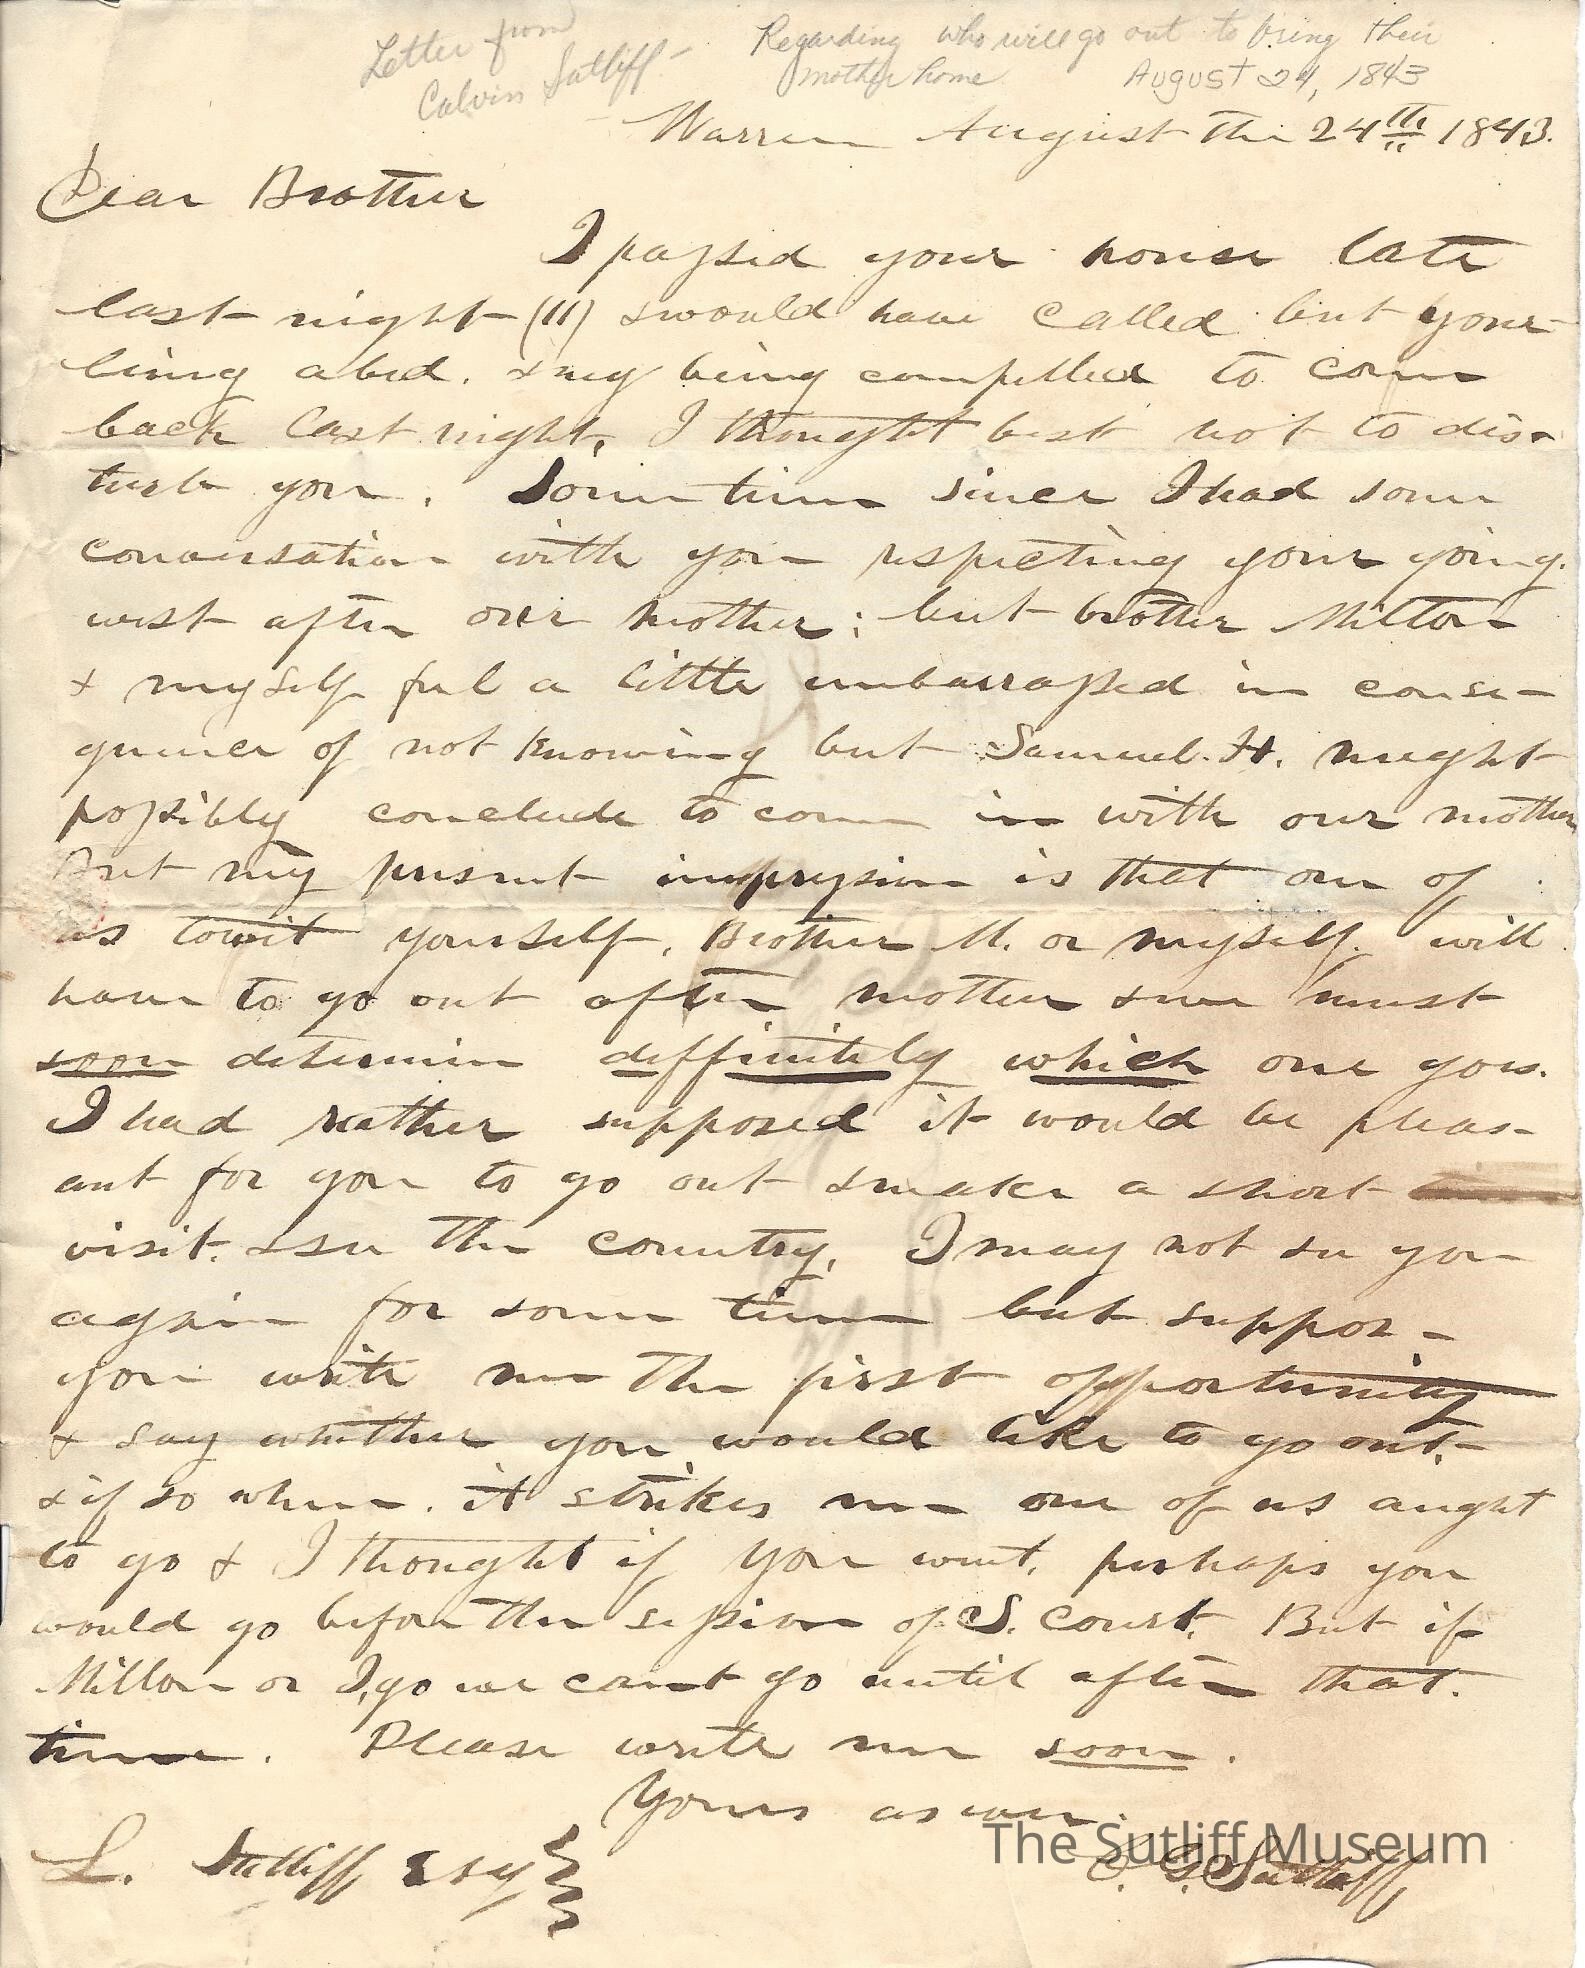 Letter from
Calvin Sutliff -
Regarding who will go out to bring their
mother home August 24, 1843
Warren August the 24th 1843.
Dear Brother
I passed your house late
last night (11) & would have called but your
being abed. & my being compelled to come
back last night, I thought best not to dis-
turb you. Some time since I had some
conversation with you respecting your going
west after our mother; but brother Milton
& myself feel a little embarrassed in conse-
quence of not knowing but Samuel. H. might
possibly conclude to come in with our mother
But my present impression is that one of
us towit yourself, Brother M. or myself. will
have to go out after mother & we must
soon determine deffinitely which one goes.
I had rather supposed it would be pleas-
ant for you to go out & make a short
visit. & see the country, I may not see you
again for some time but suppose
you write me the first opportunity
& say whether you would like to go out,
& if so when. it strikes me one of us aught
to go & I thought if you went, perhaps you
would go before the session of S. Court. But if
Milton or I, go we cant go until after that.
time. Please write me soon.
Yours as ever.
L. Sutliff Esq
C. G. Sutliff
The Sutliff Museum